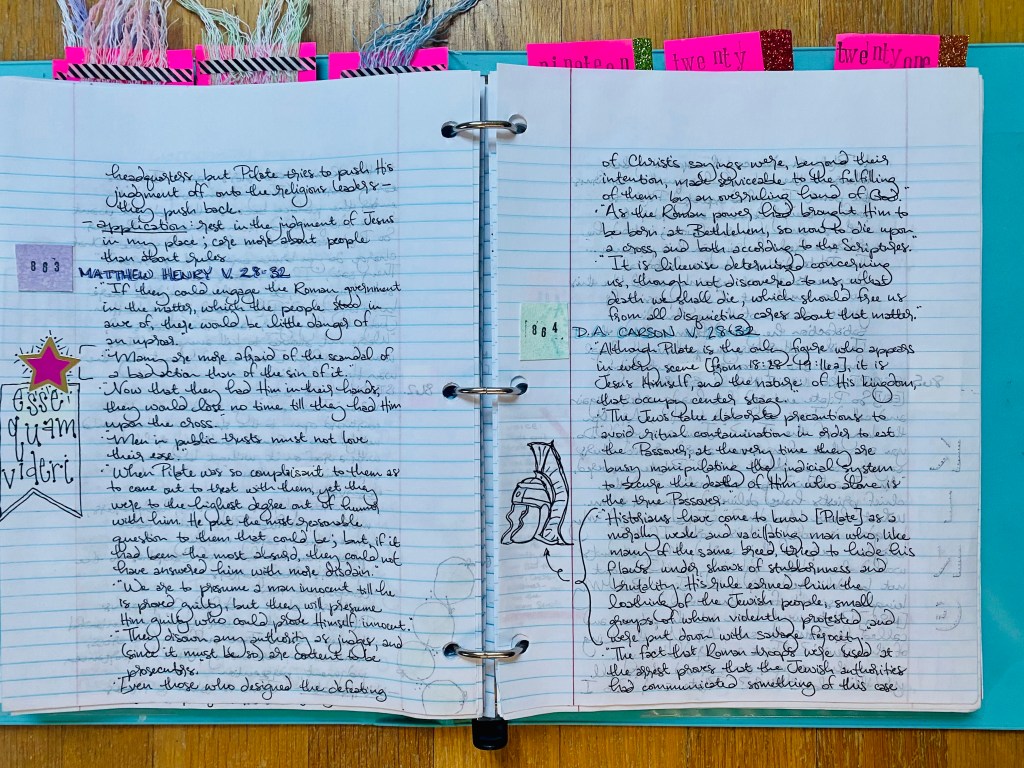 nineteen
twenty
twenty one
headquarters, but Pilate tries to push His
judgment off onto the religious leaders –
they push back.
– application: rest in the judgment of Jesus
in my place; care more about people
than about rules.
863
MATTHEW HENRY V. 28-32
· "If they could engage the Roman government
in the matter, which the people stood in
awe of, there would be little danger of
an uproar.
· "Many are more afraid of the scandal of
a bad action than of the sin of it."
· "Now that they had Him in their hands,
they would lose no time till they had Him
upon the cross.
· "Men in public trusts must not love
their ease."
· "When Pilate was so complaisant to them as
to come out to treat with them, yet they
were to the highest degree out of humor
with him. He put the most reasonable
question to them that could be; but, if it
had been the most absurd, they could not
have answered him with more disdain."
· "We are to presume a man innocent till he
is proved guilty, but they will presume
Him guilty who could prove Himself innocent."
· "They disown any authority as judges, and
(since it must be so) are content to be
prosecutors.
· "Even those who designed the defeating
esse
quam
videri
of Christ's sayings were, beyond their
intention, made serviceable to the fulfilling
of them by an overruling hand of God."
· "As the Roman power had brought Him to
be born at Bethlehem, so now to die upon
a cross, and both according to the Scriptures."
· "It is likewise determined concerning
us, though not discovered to us, what
death we shall die, which should free us
from all disquieting cares about that matter."
864
D.A. CARSON V. 28-32
· "Although Pilate is the only figure who appears
in every scene [from 18:28-19:16a], it is
Jesus Himself, and the nature of His kingdom,
that occupy center stage.
· "The Jews take elaborate precautions to
avoid ritual contamination in order to eat
the Passover, at the very time they are
busy manipulating the judicial system
to secure the death of Him who alone is
the true Passover."
· "Historians have come to know [Pilate] as a
morally weak and vacillating man who, like
many of the same breed, tried to hide his
flaws under shows of stubbornness and
brutality. His rule earned him the
loathing of the Jewish people, small
groups of whom violently protested and
were put down with savage ferocity.
· "The fact that Roman troops were used at
the arrest proves that the Jewish authorities
had communicated something of this case